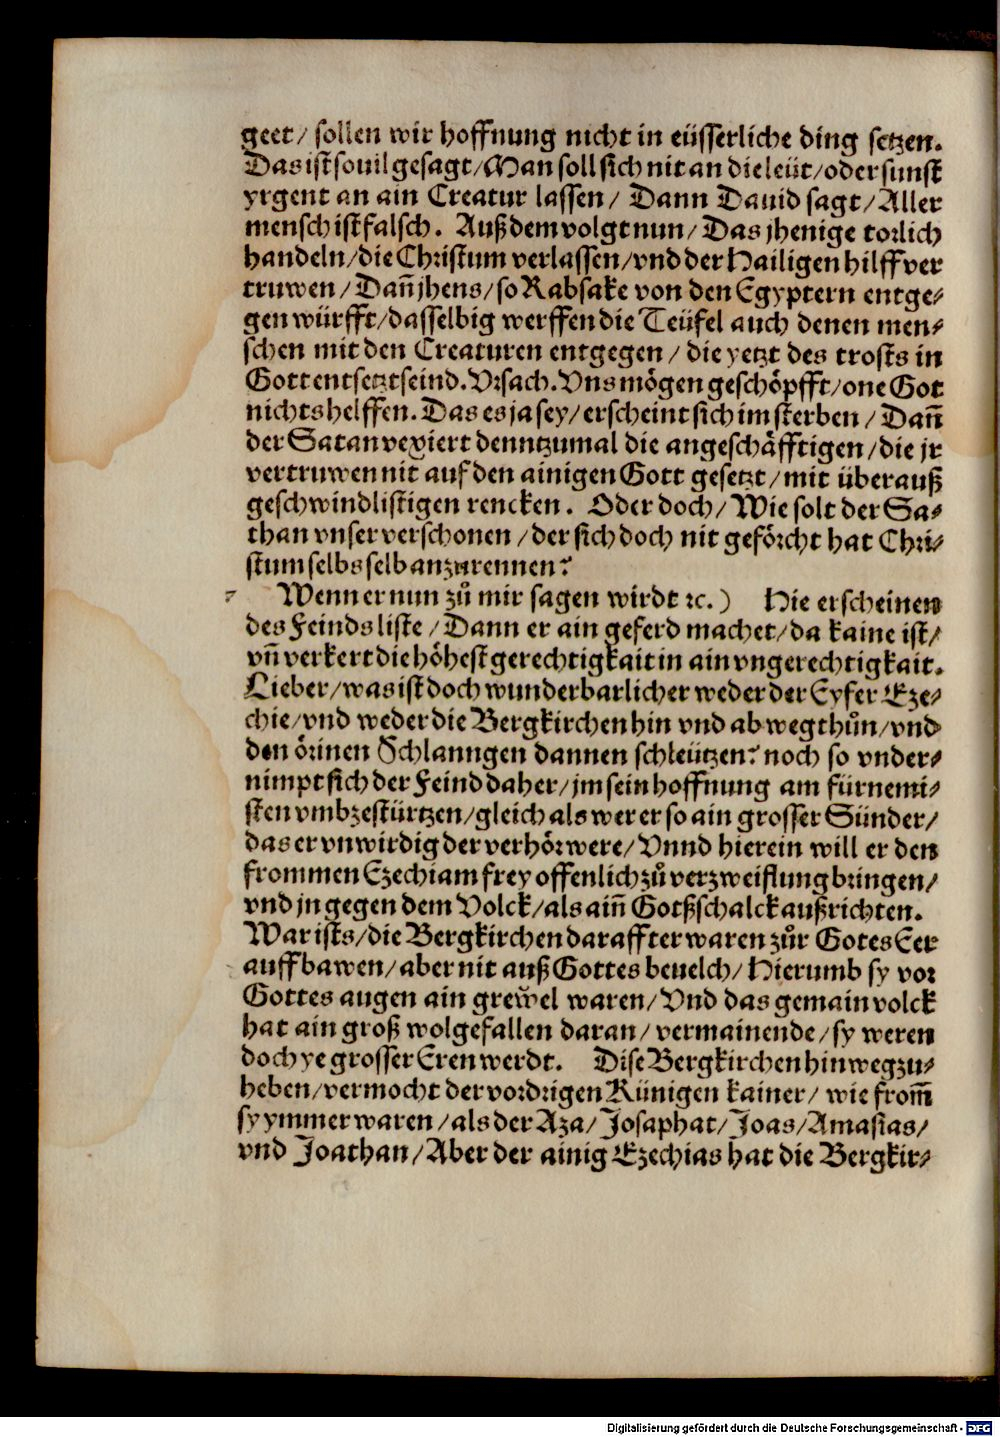 geet/ sollen wir hoffnung nicht in eüsserliche ding setzen.
Das ist souil gesagt/Man soll sich nit an die leüt/oder sunst
yrgent an ain Creatur lassen/ Dann Dauid sagt/Aller
mensch ist falsch. Auß dem volgt nun/ Das jhenige torlich
handeln/die Christum verlassen/vnd der Hailigen hilff ver
truwen/Dañ jhens/so Rabsake von den Egyptern entge-
gen würfft/dasselbig werffen die Teüfel auch denen men-
schen mit den Creaturen entgegen/ die yetzt des trosts in
Gott entsetzt seind. Vrsach. Vns mögen geschöpfft/one Got
nichts helffen. Das es ja sey/erscheint sich im sterben/ Dañ
der Satan vexiert denntzumal die angeschäfftigen/die jr
vertruwen nit auf den ainigen Gott gesetzt/mit überauß
geschwindlistigen rencken. Oder doch/ Wie solt der Sa-
than vnser verschonen/der sich doch nit geförcht hat Chri-
stum selbs selb anzurennen?
Wenn er nun zů mir sagen wirdt ꝛc.) Hie erscheinen
des Feinds liste/Dann er ain geferd machet/da kaine ist/
vñ verkert die höhest gerechtigkait in ain vngerechtigkait.
Lieber/was ist doch wunderbarlicher weder der Eyfer Eze-
chie/vnd weder die Bergkirchen hin vnd ab weg thůn/vnd
den örinen Schlanngen dannen schleützen? noch so vnder-
nimpt sich der Feind daher/jm sein hoffnung am fürnemi-
sten vmbzestürtzen/gleich als wer er so ain grosser Sünder/
das er vnwirdig der verhör were/Vnnd hierein will er den
frommen Ezechiam frey offenlich zů verzweiflung bringen/
vnd jn gegen dem Volck/als aiñ Gotßschalck außrichten.
War ists/die Bergkirchen daraffter waren zůr Gotes Eer
auffbawen/aber nit auß Gottes beuelch/Hierumb sy vor
Gottes augen ain grewel waren/Vnd das gemain volck
hat ain groß wolgefallen daran/vermainende/sy weren
doch ye grosser Eren werdt. Dise Bergkirchen hinwegzu-
heben/vermocht der vordrigen Künigen kainer/ wie from̃
sy ymmer waren/als der Aza/Josaphat/Joas/Amasias/
vnd Joathan/Aber der ainig Ezechias hat die Bergkir-
Digitalisierung gefördert durch die Deutsche Forschungsgemeinschaft - DFG